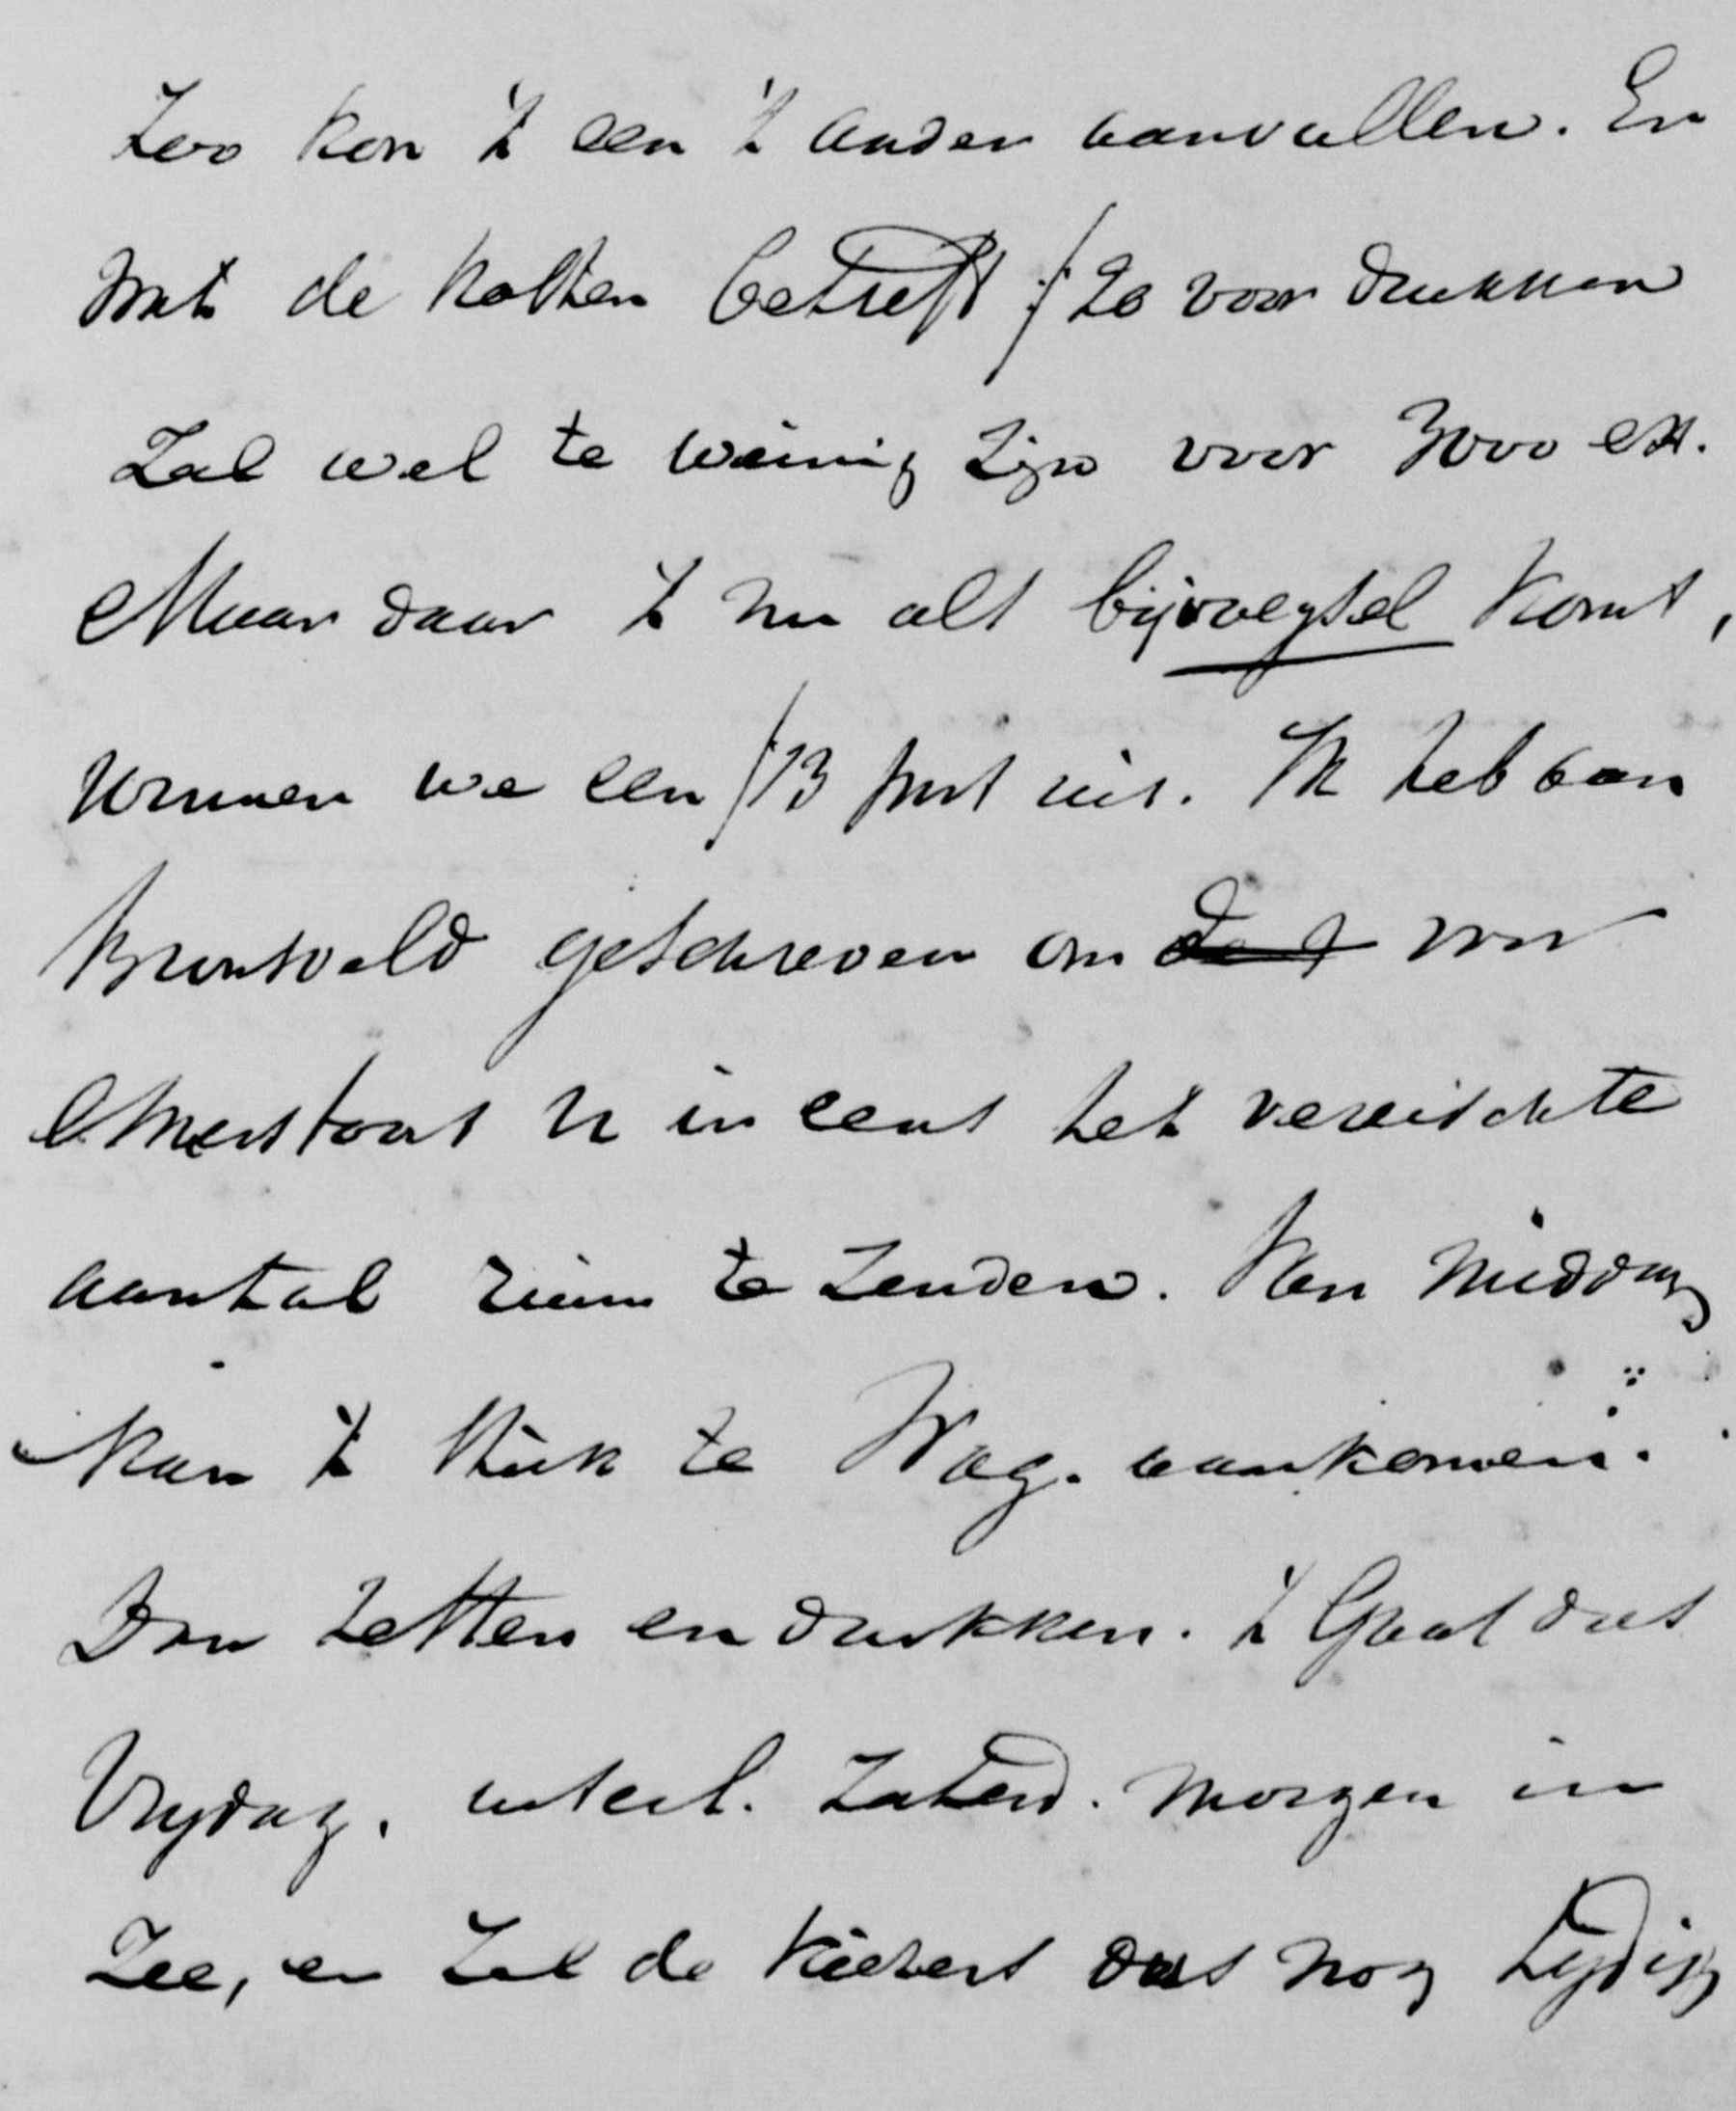 Zoo kon 't een 't ander aanvullen. En
wat de kosten betreft f 20 voor drukken
zal wel te weinig zijn voor 3000 ex.
Maar daar 't nu als bijvoegsel komt,
winnen we een f 13 port uit. Ik heb aan
Bronsveld geschreven om dat voor
Amerstoort U ineens het vereischte
aantal riem te zenden. Van middag
kan 't stuk te Wag. aankomen.
Dan zetten en drukken. 't Gaat dus
Vrijdag, uiterl. Zaterd. morgen in
Zee, en zal de kiezers dus nog tijdig